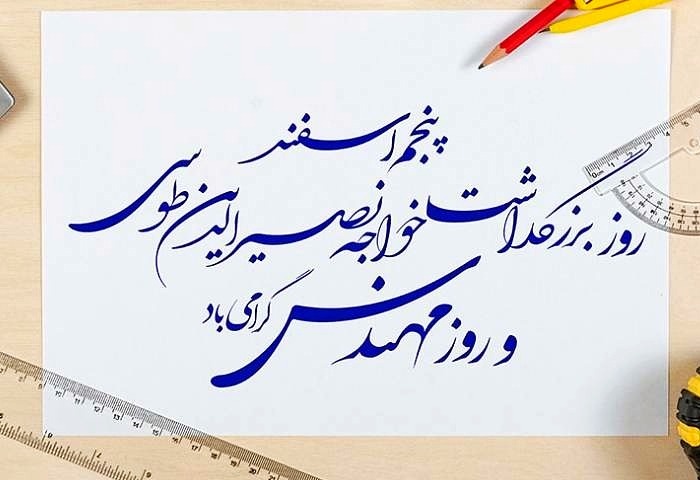 پنجم اسفند
روز بزرگداشت خواجه نصیرالدین طوسی
و روز مهندس گرامی باد